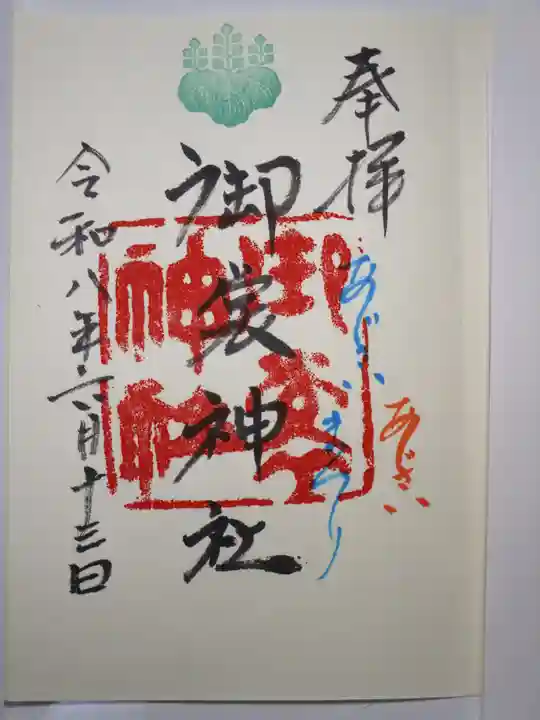 奉拝
あじさいまつり
あじさい
御裳神社
御裳
神社
令和八年六月十三日